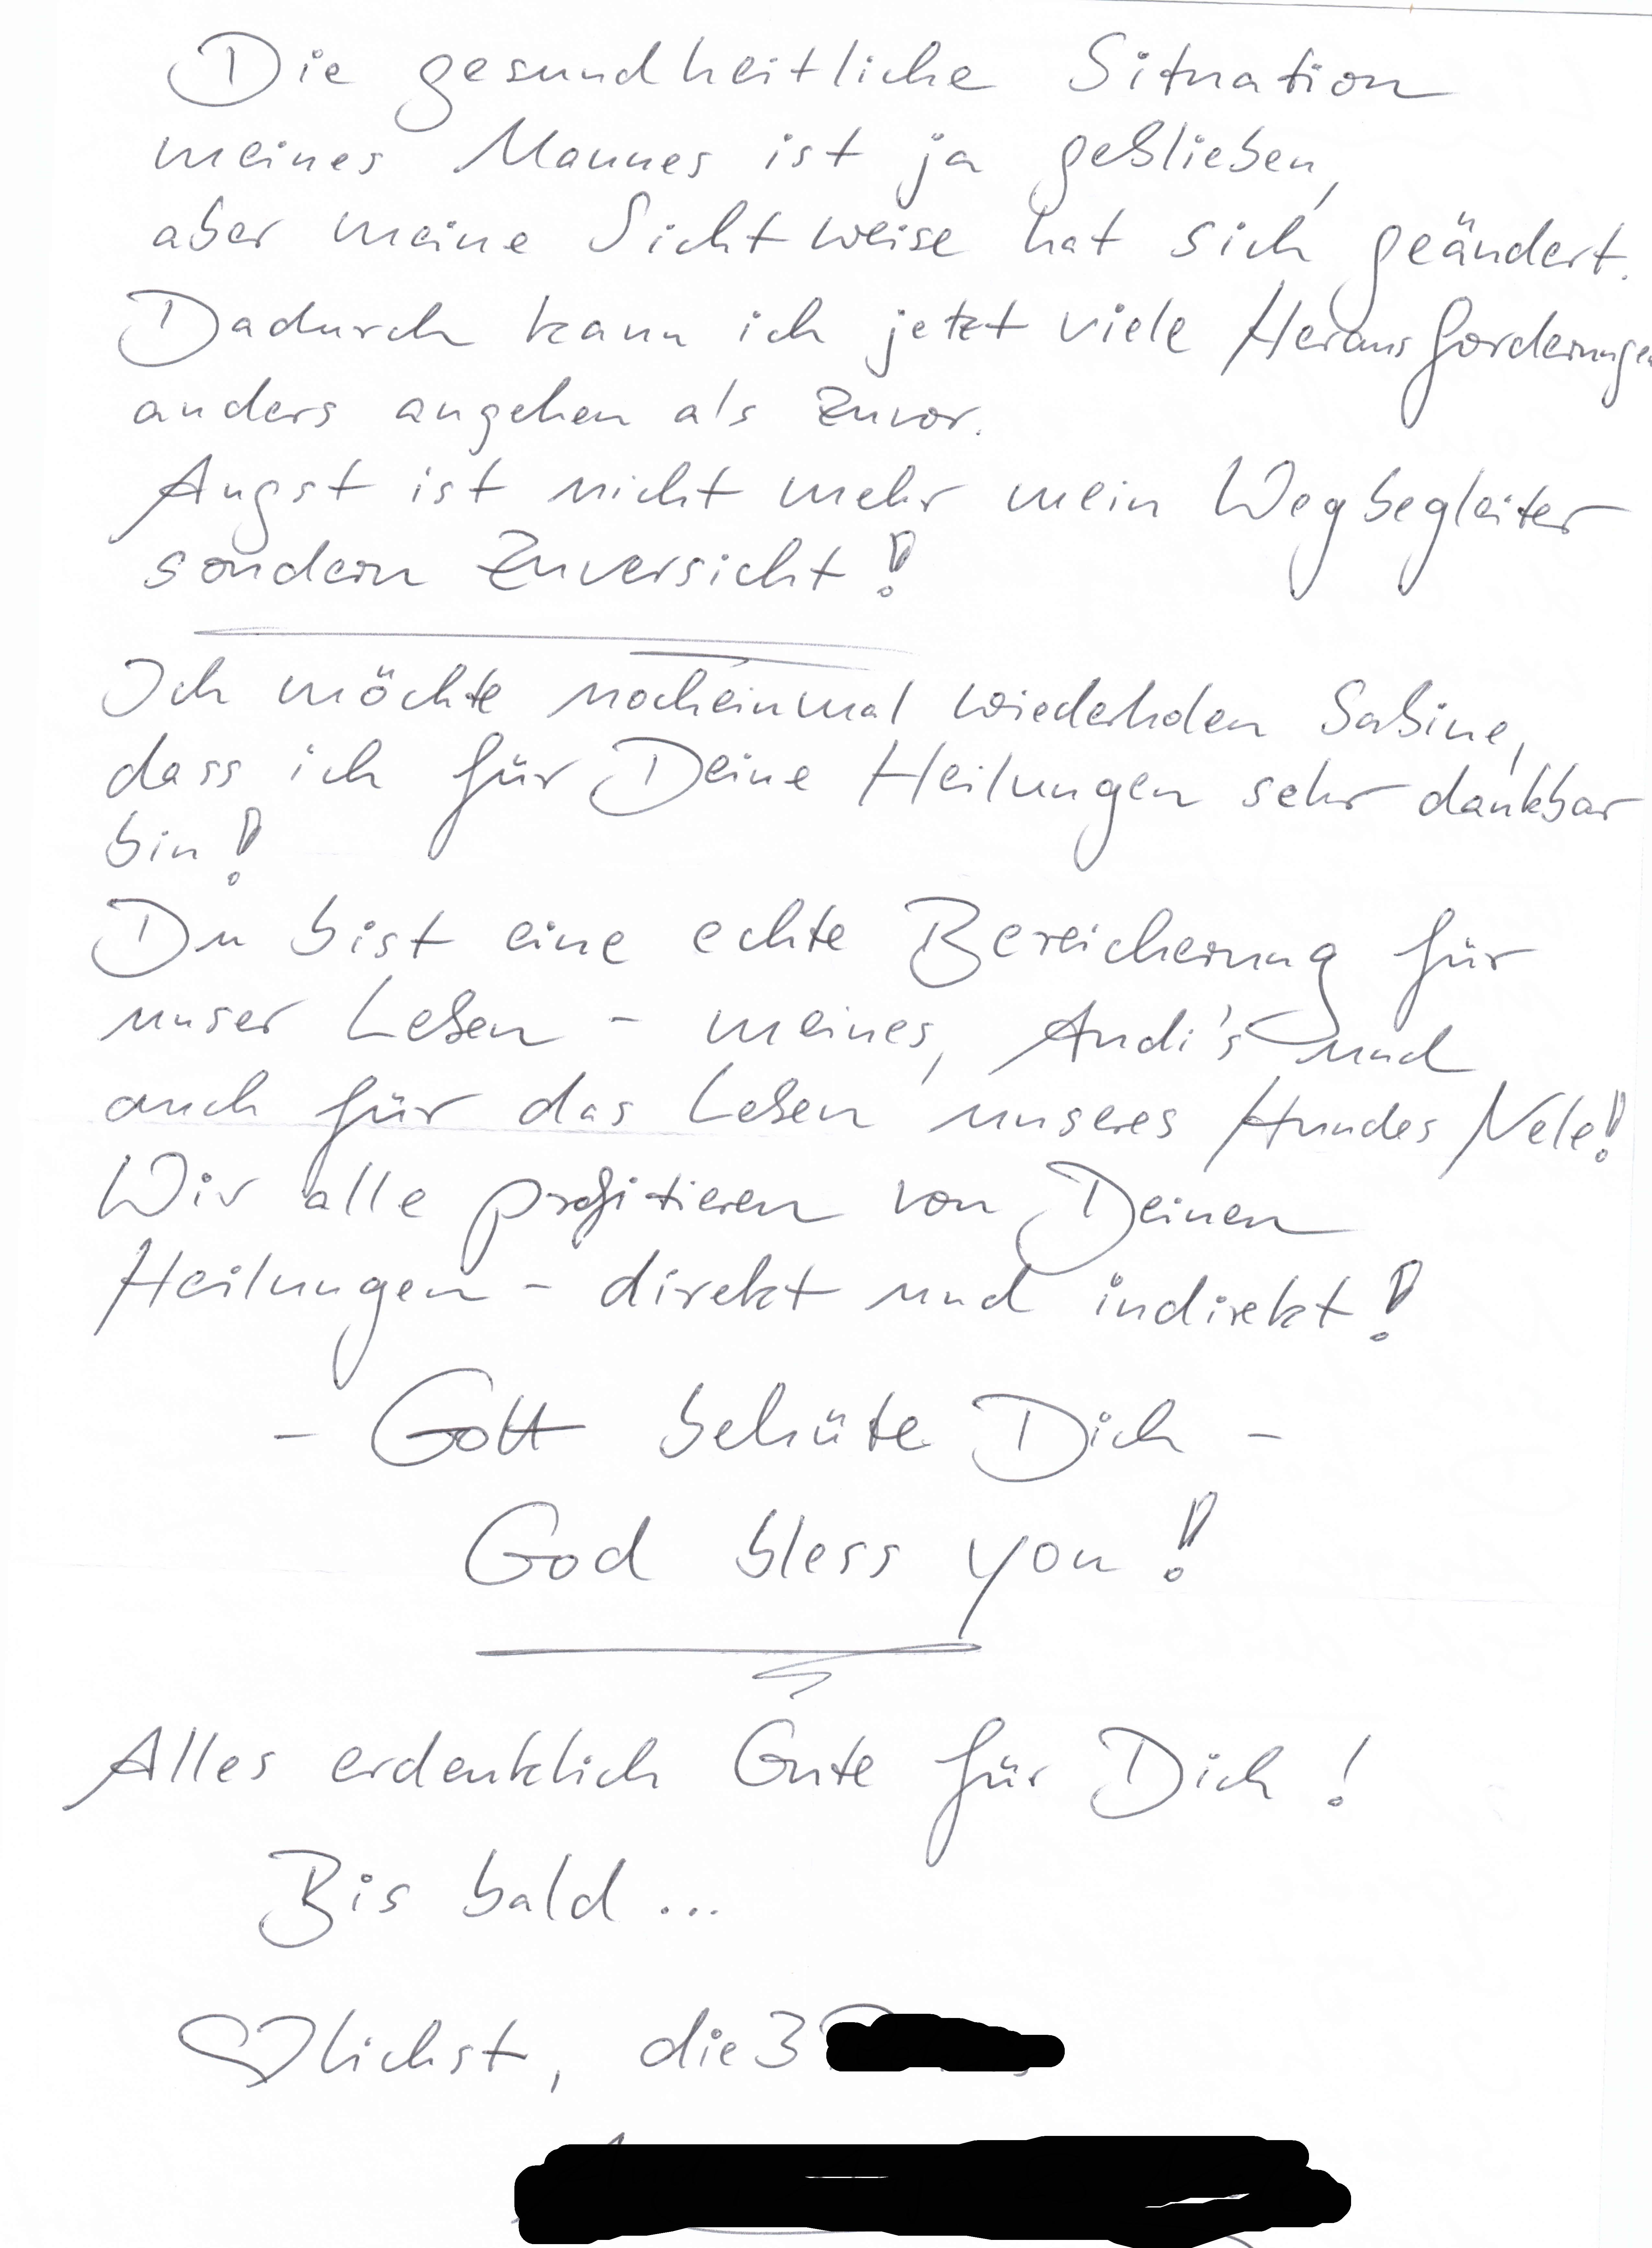 Die gesundheitliche Situation
meines Mannes ist ja geblieben,
aber meine Sichtweise hat sich geändert.
Dadurch kann ich jetzt viele Herausforderungen
anders angehen als zuvor.
Angst ist nicht mehr mein Wegbegleiter
sondern Zuversicht!
Ich möchte nocheinmal wiederholen Sabine,
dass ich für Deine Heilungen sehr dankbar
bin!
Du bist eine echte Bereicherung für
unser Leben - meines, Andi's und
auch für das Leben unseres Hundes Nele!
Wir alle profitieren von Deinen
Heilungen - direkt und indirekt!
- Gott behüte Dich -
God bless you!
Alles erdenklich Gute für Dich!
Bis bald...
♡lichst, die 3